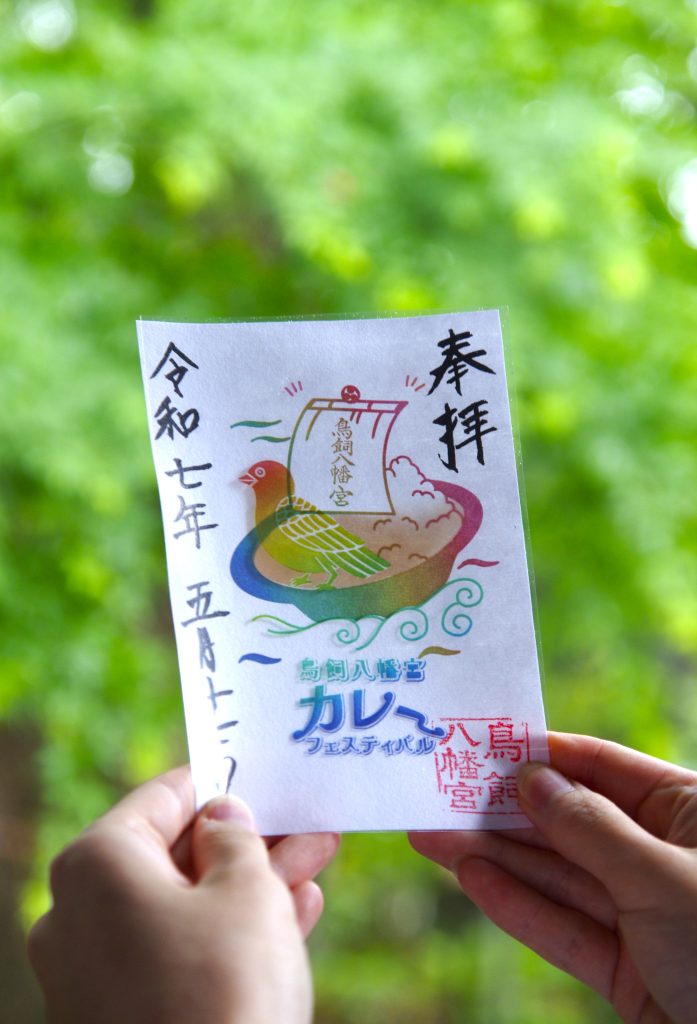 奉拝
鳥飼八幡宮
鳥飼八幡宮
カレー
フェスティバル
鳥飼
八幡宮
令和七年五月十